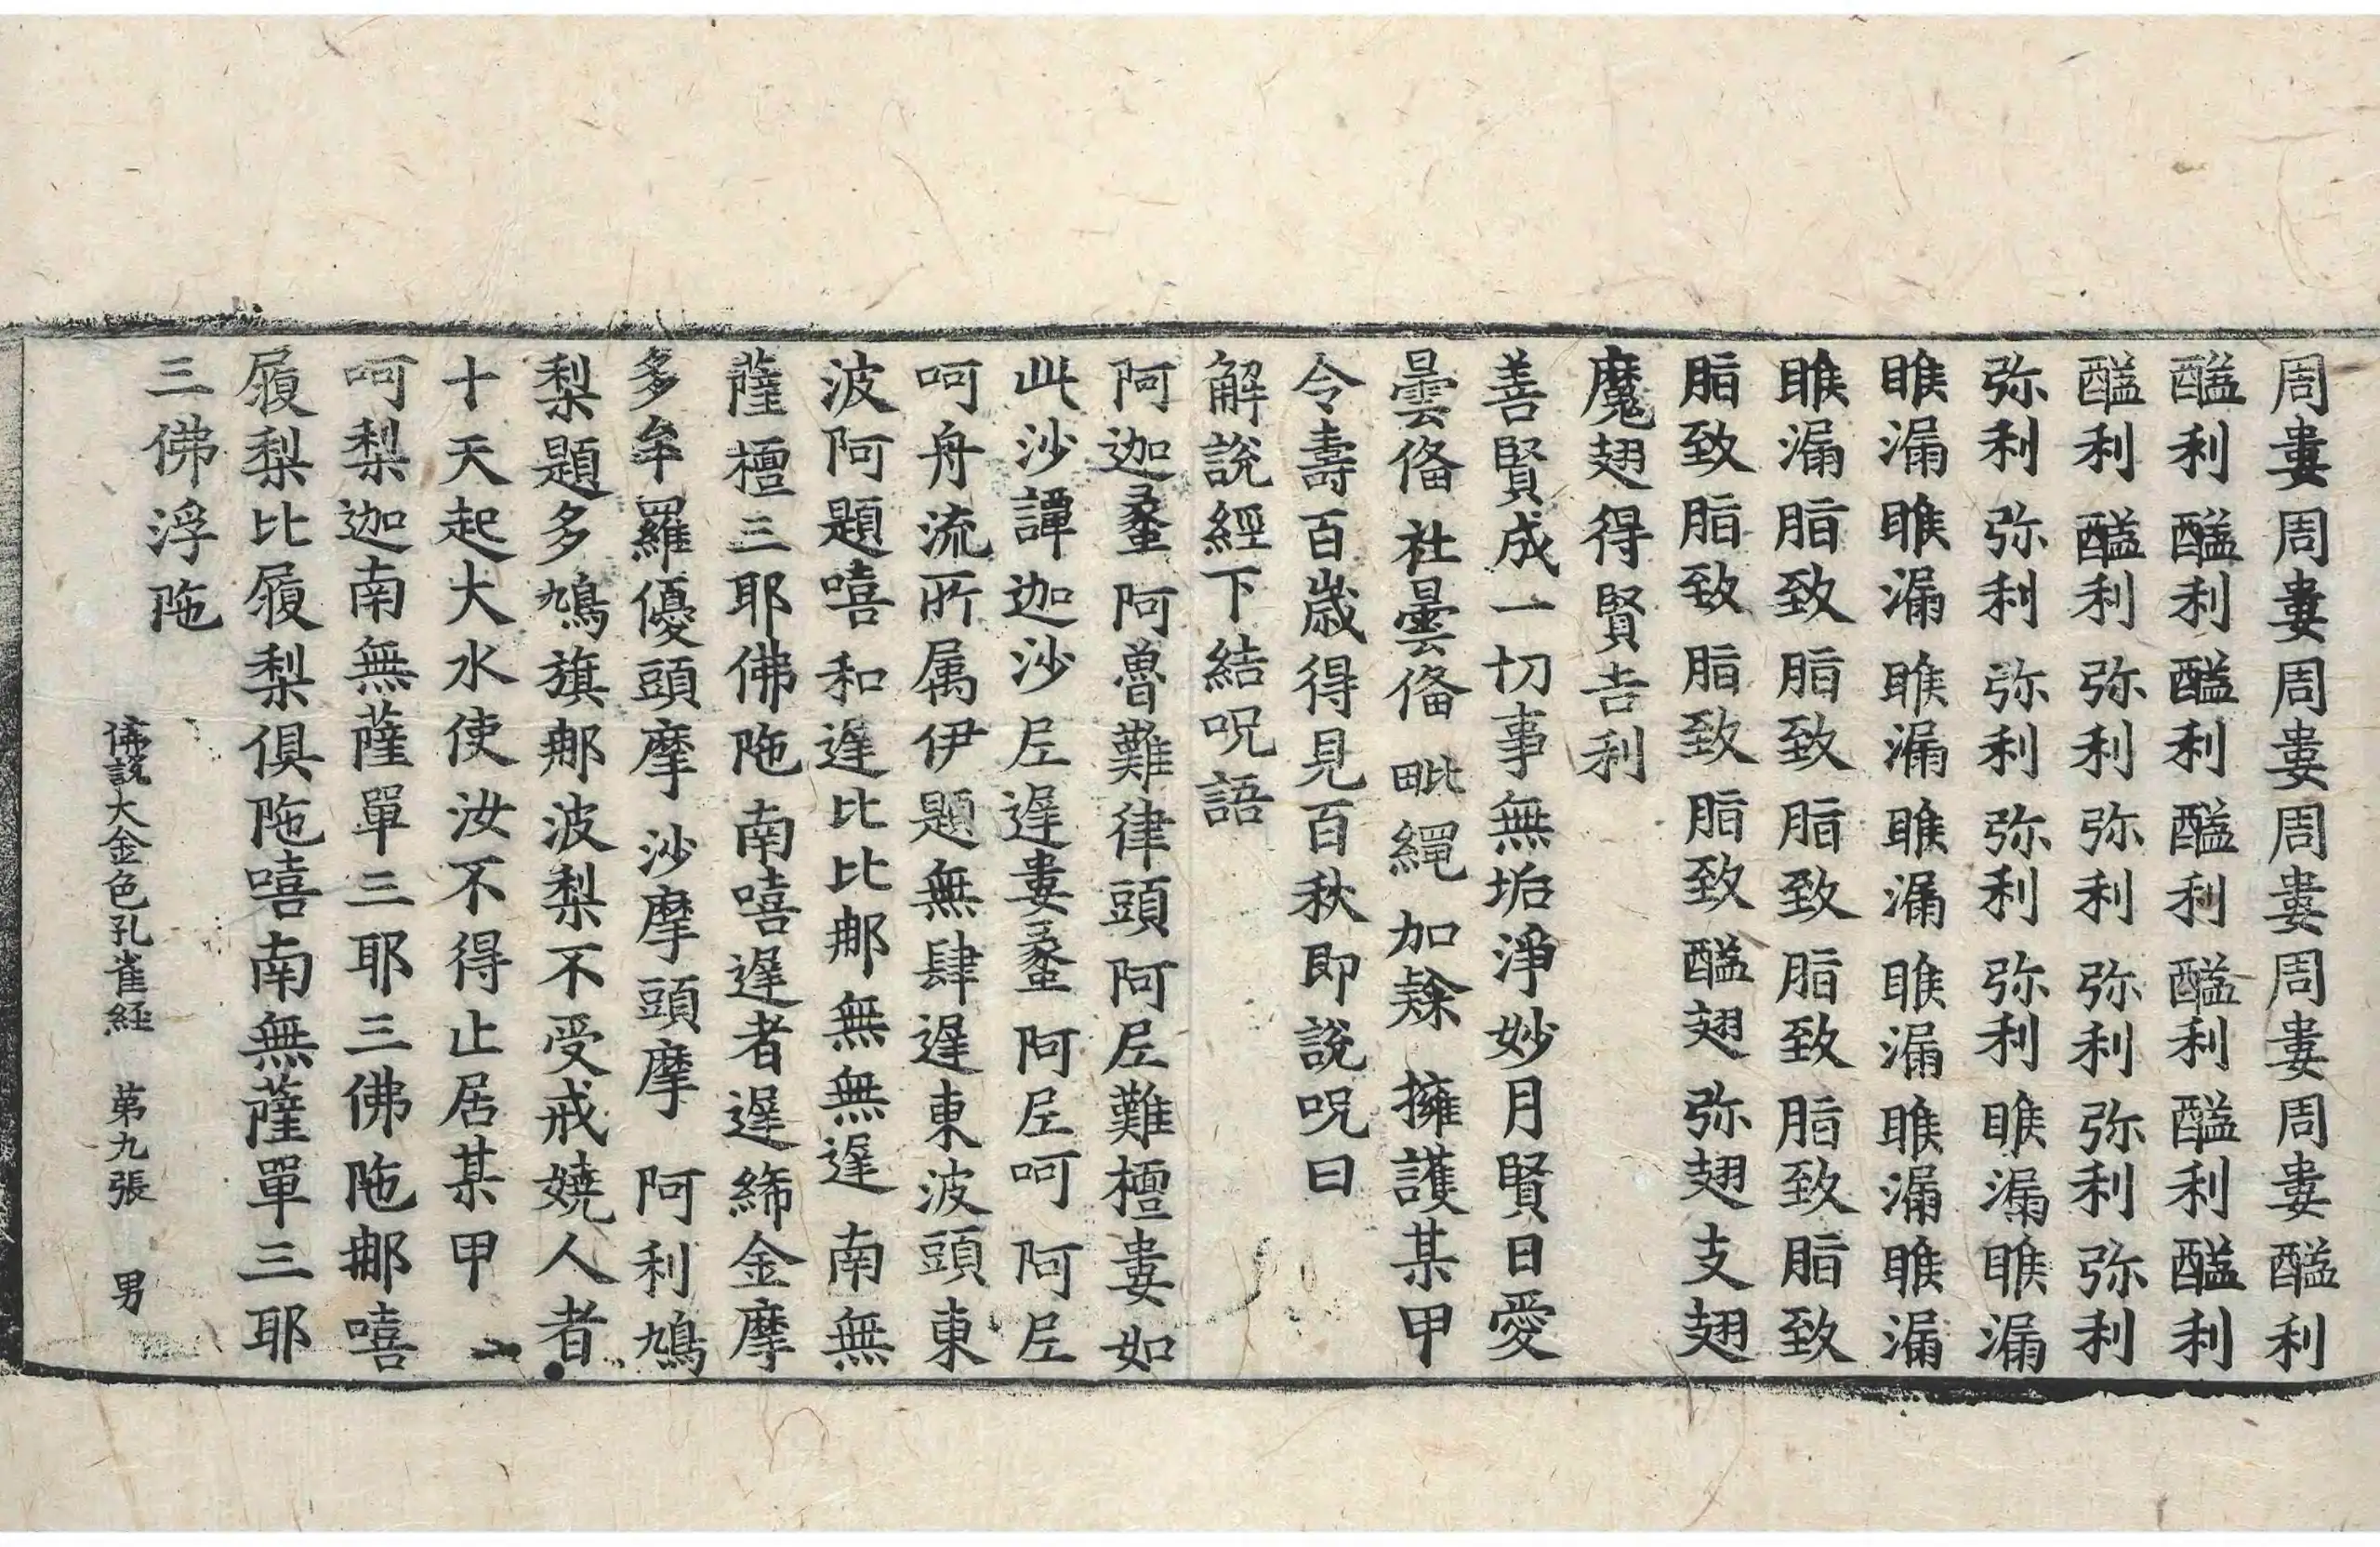 周婁周婁周婁周婁周婁周婁醯利
醯利醯利醯利醯利醯利醯利醯利
醯利醯利弥利弥利弥利弥利弥利
弥利弥利弥利弥利弥利睢漏睢漏
睢漏睢漏睢漏睢漏睢漏睢漏睢漏
睢漏脂致脂致脂致脂致脂致脂致
脂致脂致脂致脂致醯翅弥翅支翅
魔翅得賢吉利
善賢成一切事無垢淨妙月賢日愛
曇俻社曇俻毗繩加賖擁護某甲
令壽百歲得見百秋即說呪曰
解說經下結呪語
阿迦羍阿魯難律頭阿𡰱難檀婁如
此沙譚迦沙𡰱遟婁羍阿𡰱呵阿𡰱
呵舟流所属伊題無肆遟東波頭東
波阿題嘻和遟比比𨚗無無遟南無
薩檀三耶佛陁南嘻遟者遟締金摩
多牟羅優頭摩沙摩頭摩阿利鳩
梨題多鳩旗𨚗波梨不受戒嬈人者
十天起大水使汝不得止居某甲
呵梨迦南無薩單三耶三佛陁𨚗嘻
履梨比履梨俱陁嘻南無薩單三耶
三佛浮陁
佛說大金色孔雀経 苐九張 男